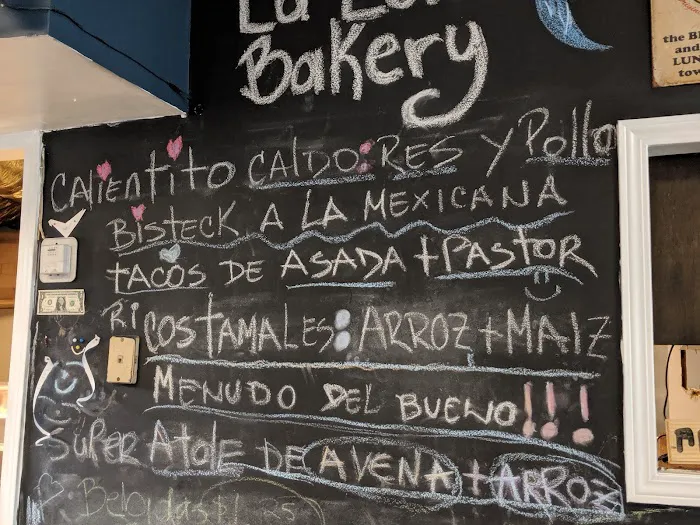 La
Bakery
CALIENTITO CALDO: RES Y Pollo
BISTECK A LA MEXICANA
TACOS DE ASADA + PASTOR
RICOS TAMALES: ARROZ + MAIZ
MENUDO DEL BUENO!!!
SUPER Atole DE AVENA + ARROZ
Bebidas
and
LUN